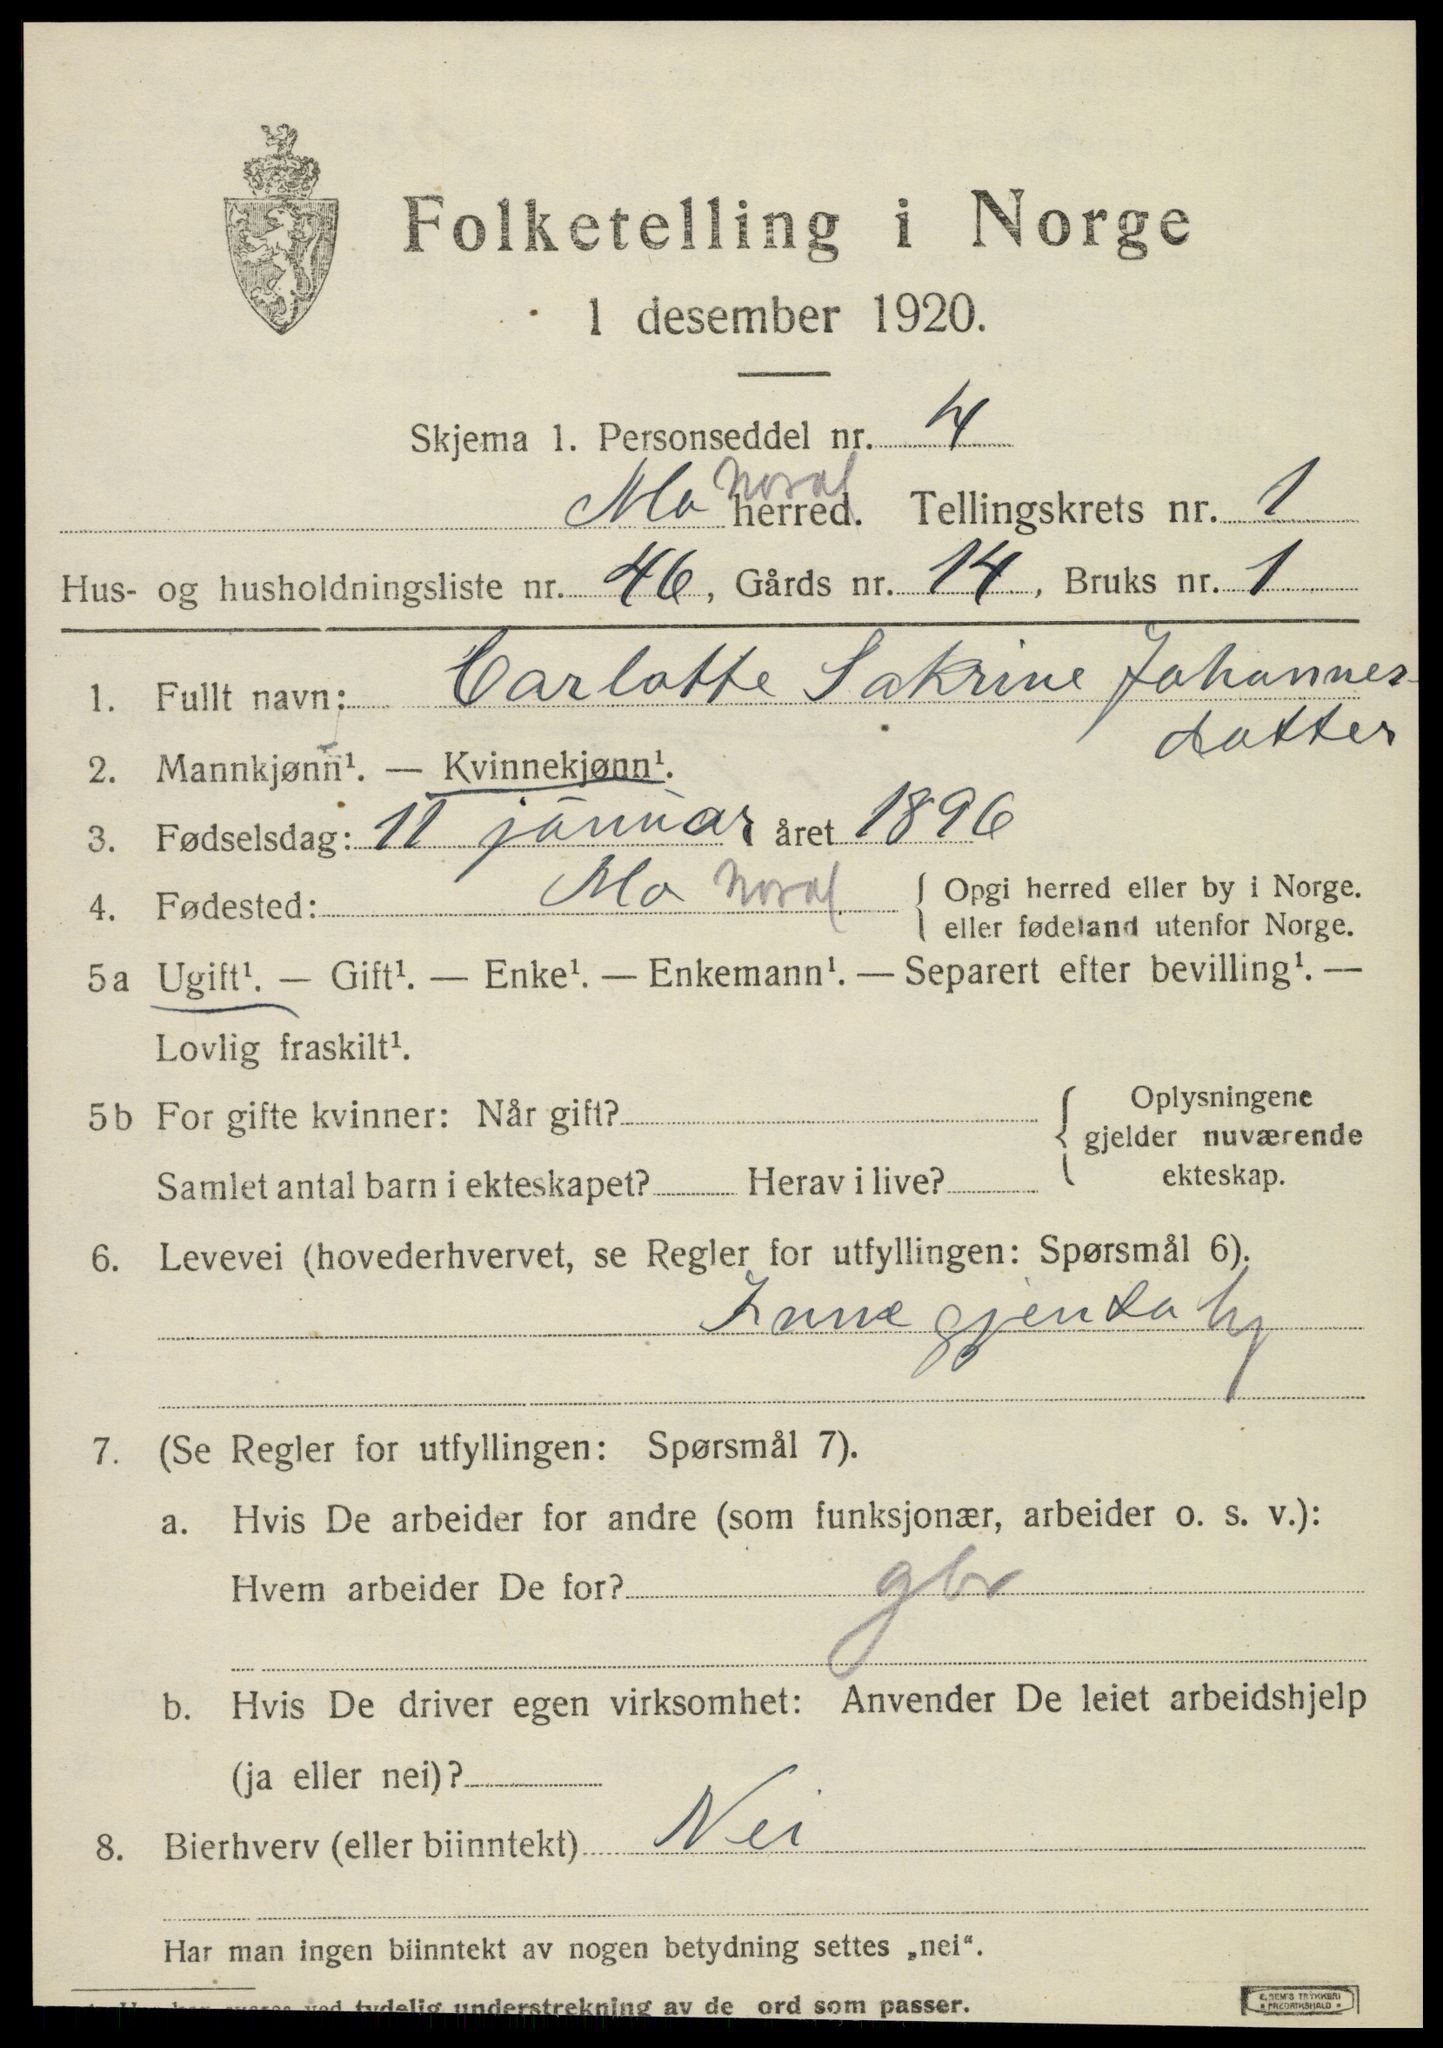 Folketelling i Norge
1 desember 1920.
Skjema 1. Personseddel nr. 4
Mo Noral herred. Tellingskrets nr. 1
Hus- og husholdningsliste nr. 46, Gårds nr. 14, Bruks nr. 1
1. Fullt navn: Carlotte Sakrine Johannes-
dotter
2. Mannkjønn¹. — Kvinnekjønn¹.
3. Fødselsdag: 11 januar året 1896
4. Fødested: Mo Noral { Opgi herred eller by i Norge.
eller fødeland utenfor Norge.
5a Ugift¹. — Gift¹. — Enke¹. — Enkemann¹. — Separert efter bevilling¹. —
Lovlig fraskilt¹.
5b For gifte kvinner: Når gift? { Oplysningene
gjelder nuværende
Samlet antal barn i ekteskapet? Herav i live? ekteskap.
6. Levevei (hovederhvervet, se Regler for utfyllingen: Spørsmål 6).
Inne gjenta hj
7. (Se Regler for utfyllingen: Spørsmål 7).
a. Hvis De arbeider for andre (som funksjonær, arbeider o. s. v.):
Hvem arbeider De for? gbr
b. Hvis De driver egen virksomhet: Anvender De leiet arbeidshjelp
(ja eller nei)?
8. Bierhverv (eller biinntekt) Nei
Har man ingen biinntekt av nogen betydning settes „nei“.
tydelig understrekning av de ord som passer.
E. SEM'S TRYKKERI
FREDRIKSHALD